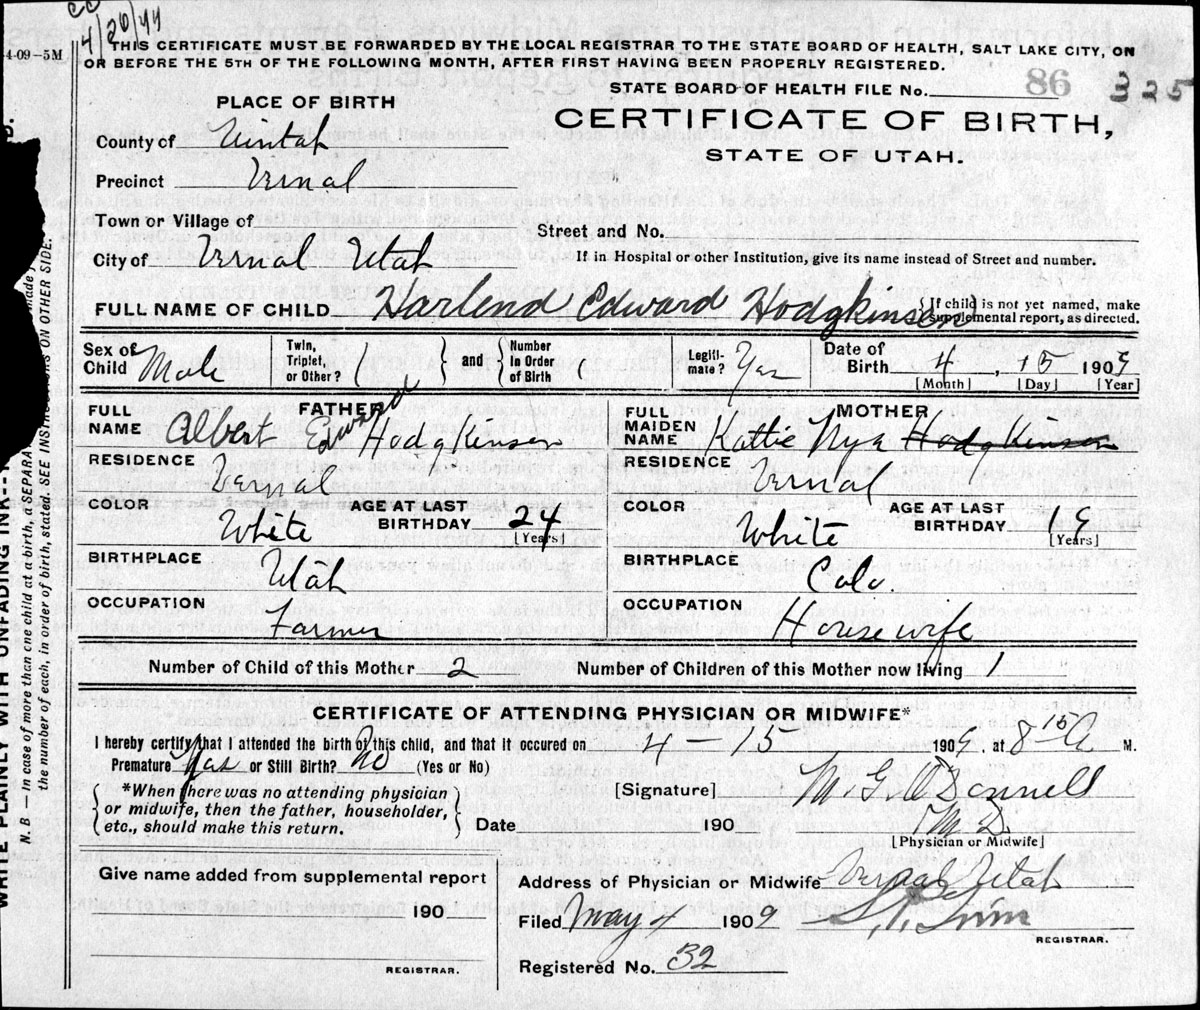 4/20/44
4-09-5M
THIS CERTIFICATE MUST BE FORWARDED BY THE LOCAL REGISTRAR TO THE STATE BOARD OF HEALTH, SALT LAKE CITY, ON
OR BEFORE THE 5TH OF THE FOLLOWING MONTH, AFTER FIRST HAVING BEEN PROPERLY REGISTERED.
STATE BOARD OF HEALTH FILE No. 86 325
PLACE OF BIRTH
CERTIFICATE OF BIRTH,
STATE OF UTAH.
County of Uintah
Precinct Vernal
Town or Village of
Street and No.
City of Vernal Utah
If in Hospital or other Institution, give its name instead of Street and number.
FULL NAME OF CHILD Harlend Edward Hodgkinson { If child is not yet named, make supplemental report, as directed.
Sex of Child Male Twin, Triplet, or Other? { } and { Number in Order of Birth Legiti-mate? Yas Date of Birth 4, 15 1909
[Month] [Day] [Year]
FATHER
FULL NAME Albert Edward Hodgkinson
RESIDENCE Vernal
COLOR White AGE AT LAST BIRTHDAY 24 [Years]
BIRTHPLACE Utah
OCCUPATION Farmer
MOTHER
FULL MAIDEN NAME Kattie Nye Hodgkinson
RESIDENCE Vernal
COLOR White AGE AT LAST BIRTHDAY 19 [Years]
BIRTHPLACE Colo.
OCCUPATION Housewife
Number of Child of this Mother 2 Number of Children of this Mother now living 1
CERTIFICATE OF ATTENDING PHYSICIAN OR MIDWIFE*
I hereby certify that I attended the birth of this child, and that it occured on 4-15 1909, at 8 15 A M.
Premature Yas or Still Birth? No (Yes or No)
*When there was no attending physician
or midwife, then the father, householder,
etc., should make this return.
[Signature] M. G. O'Donnell
M D.
Date 190
[Physician or Midwife]
Give name added from supplemental report
190
REGISTRAR.
Address of Physician or Midwife Vernal Utah
Filed May 4 1909
REGISTRAR.
Registered No. 32
WRITE PLAINLY WITH UNFADING INK
N. B — In case of more than one child at a birth, a SEPARA made
the number of each, in order of birth, stated. SEE INSTRUCTIONS ON OTHER SIDE.